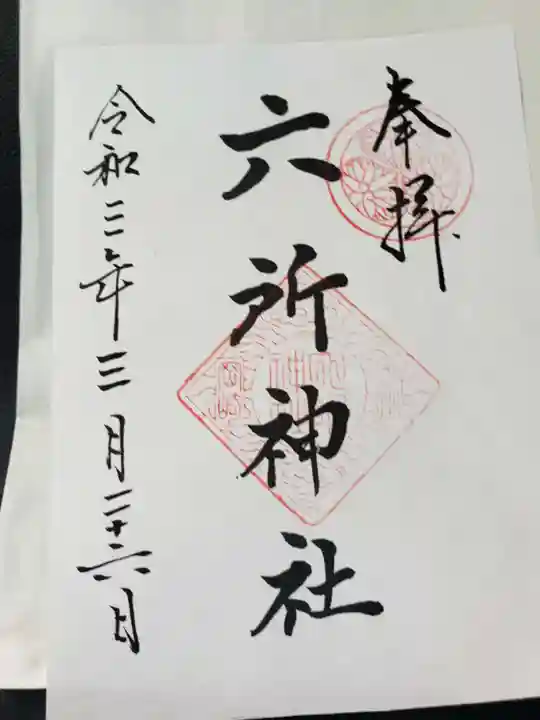 奉拝
六所神社
令和二年三月二十六日